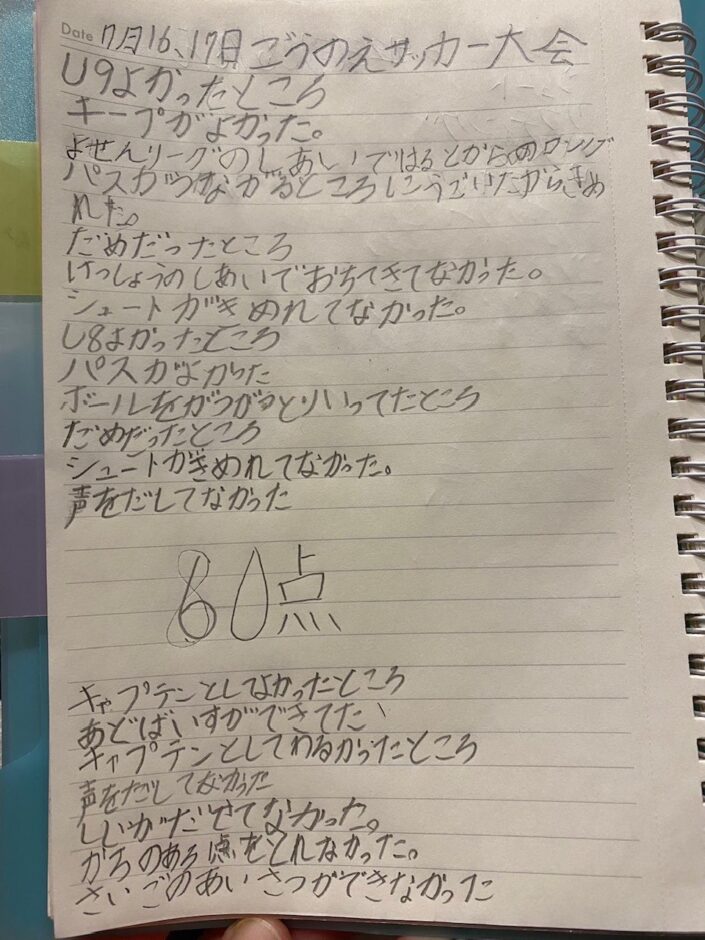 Date 7月16、17日 ごうのえサッカー大会
U9よかったところ
キープがよかった。
よせんリーグのしあいではるとからのロング
パスがつながるところにうごいたからきめ
れた。
だめだったところ
けっしょうのしあいでおちてきてなかった。
シュートがきめれてなかった。
U8よかったところ
パスがよかった
ボールをがつがつとりいってたところ
だめだったところ
シュートがきめれてなかった。
声をだしてなかった
60点
キャプテンとしてよかったところ
あどばいすができてた、
キャプテンとしてわるかったところ
声をだしてなかった
しじがだせてなかった。
がちのある点をとれなかった。
さいごのあいさつができなかった